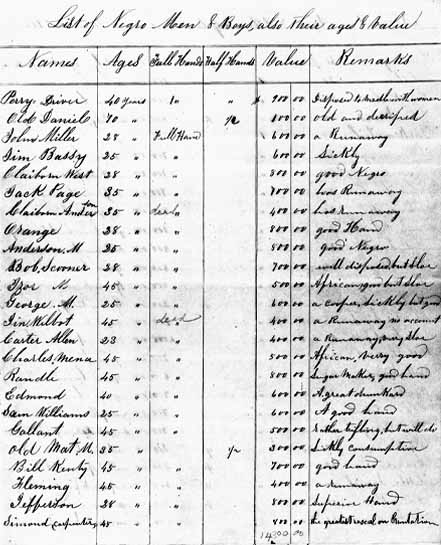 List of Negro Men & Boys, also their ages & Value
Names Ages Full Hands Half Hands Value Remarks
Perry Driver 40 years 1 " " $ 900 00 Disposed to meddle with women
Old Daniel 70 " 1/2 100 00 old and decrepid
John Miller 28 Full Hand 600 00 a Runaway
Jim Bassy 25 " " 600 00 Sickly
Claiborn West 28 " " 800 00 good Negro
Jack Page 35 " " 700 00 has Runaway
Claiborn Anderson 35 dead " 400 00 has runaway
Orange 28 " " 800 00 good Hand
Anderson, M 25 " " 800 00 good Negro
Bob, Scooner 28 " " 700 00 well disposed but slow
" " 500 00 African, good but slow
George. M. 25 " " 600 00 a cooper, sickly but good
45 dead " 400 00 a Runaway no account
Carter Allen 23 " " 400 00 a Runaway, very slow
Charles, Mena 45 " " 500 00 African, very good
Randle 45 " " 800 00 Sugar Maker, good hand
Edmond 40 " " 600 00 A great drunkard
Sam Williams 25 " 600 00 A good hand
Gallant 45 " " 500 00 rather trifling, but will do
Old Mat M. 35 " 1/2 300 00 Sickly consumptive
Bill Kenty 45 " 700 00 good hand
Fleming 45 " 400 00 a runaway
Jefferson 28 " 800 00 Superior Hand
Simond (carpenter) 45 " " 800 00 the greatest rascal on Plantation
14300 00